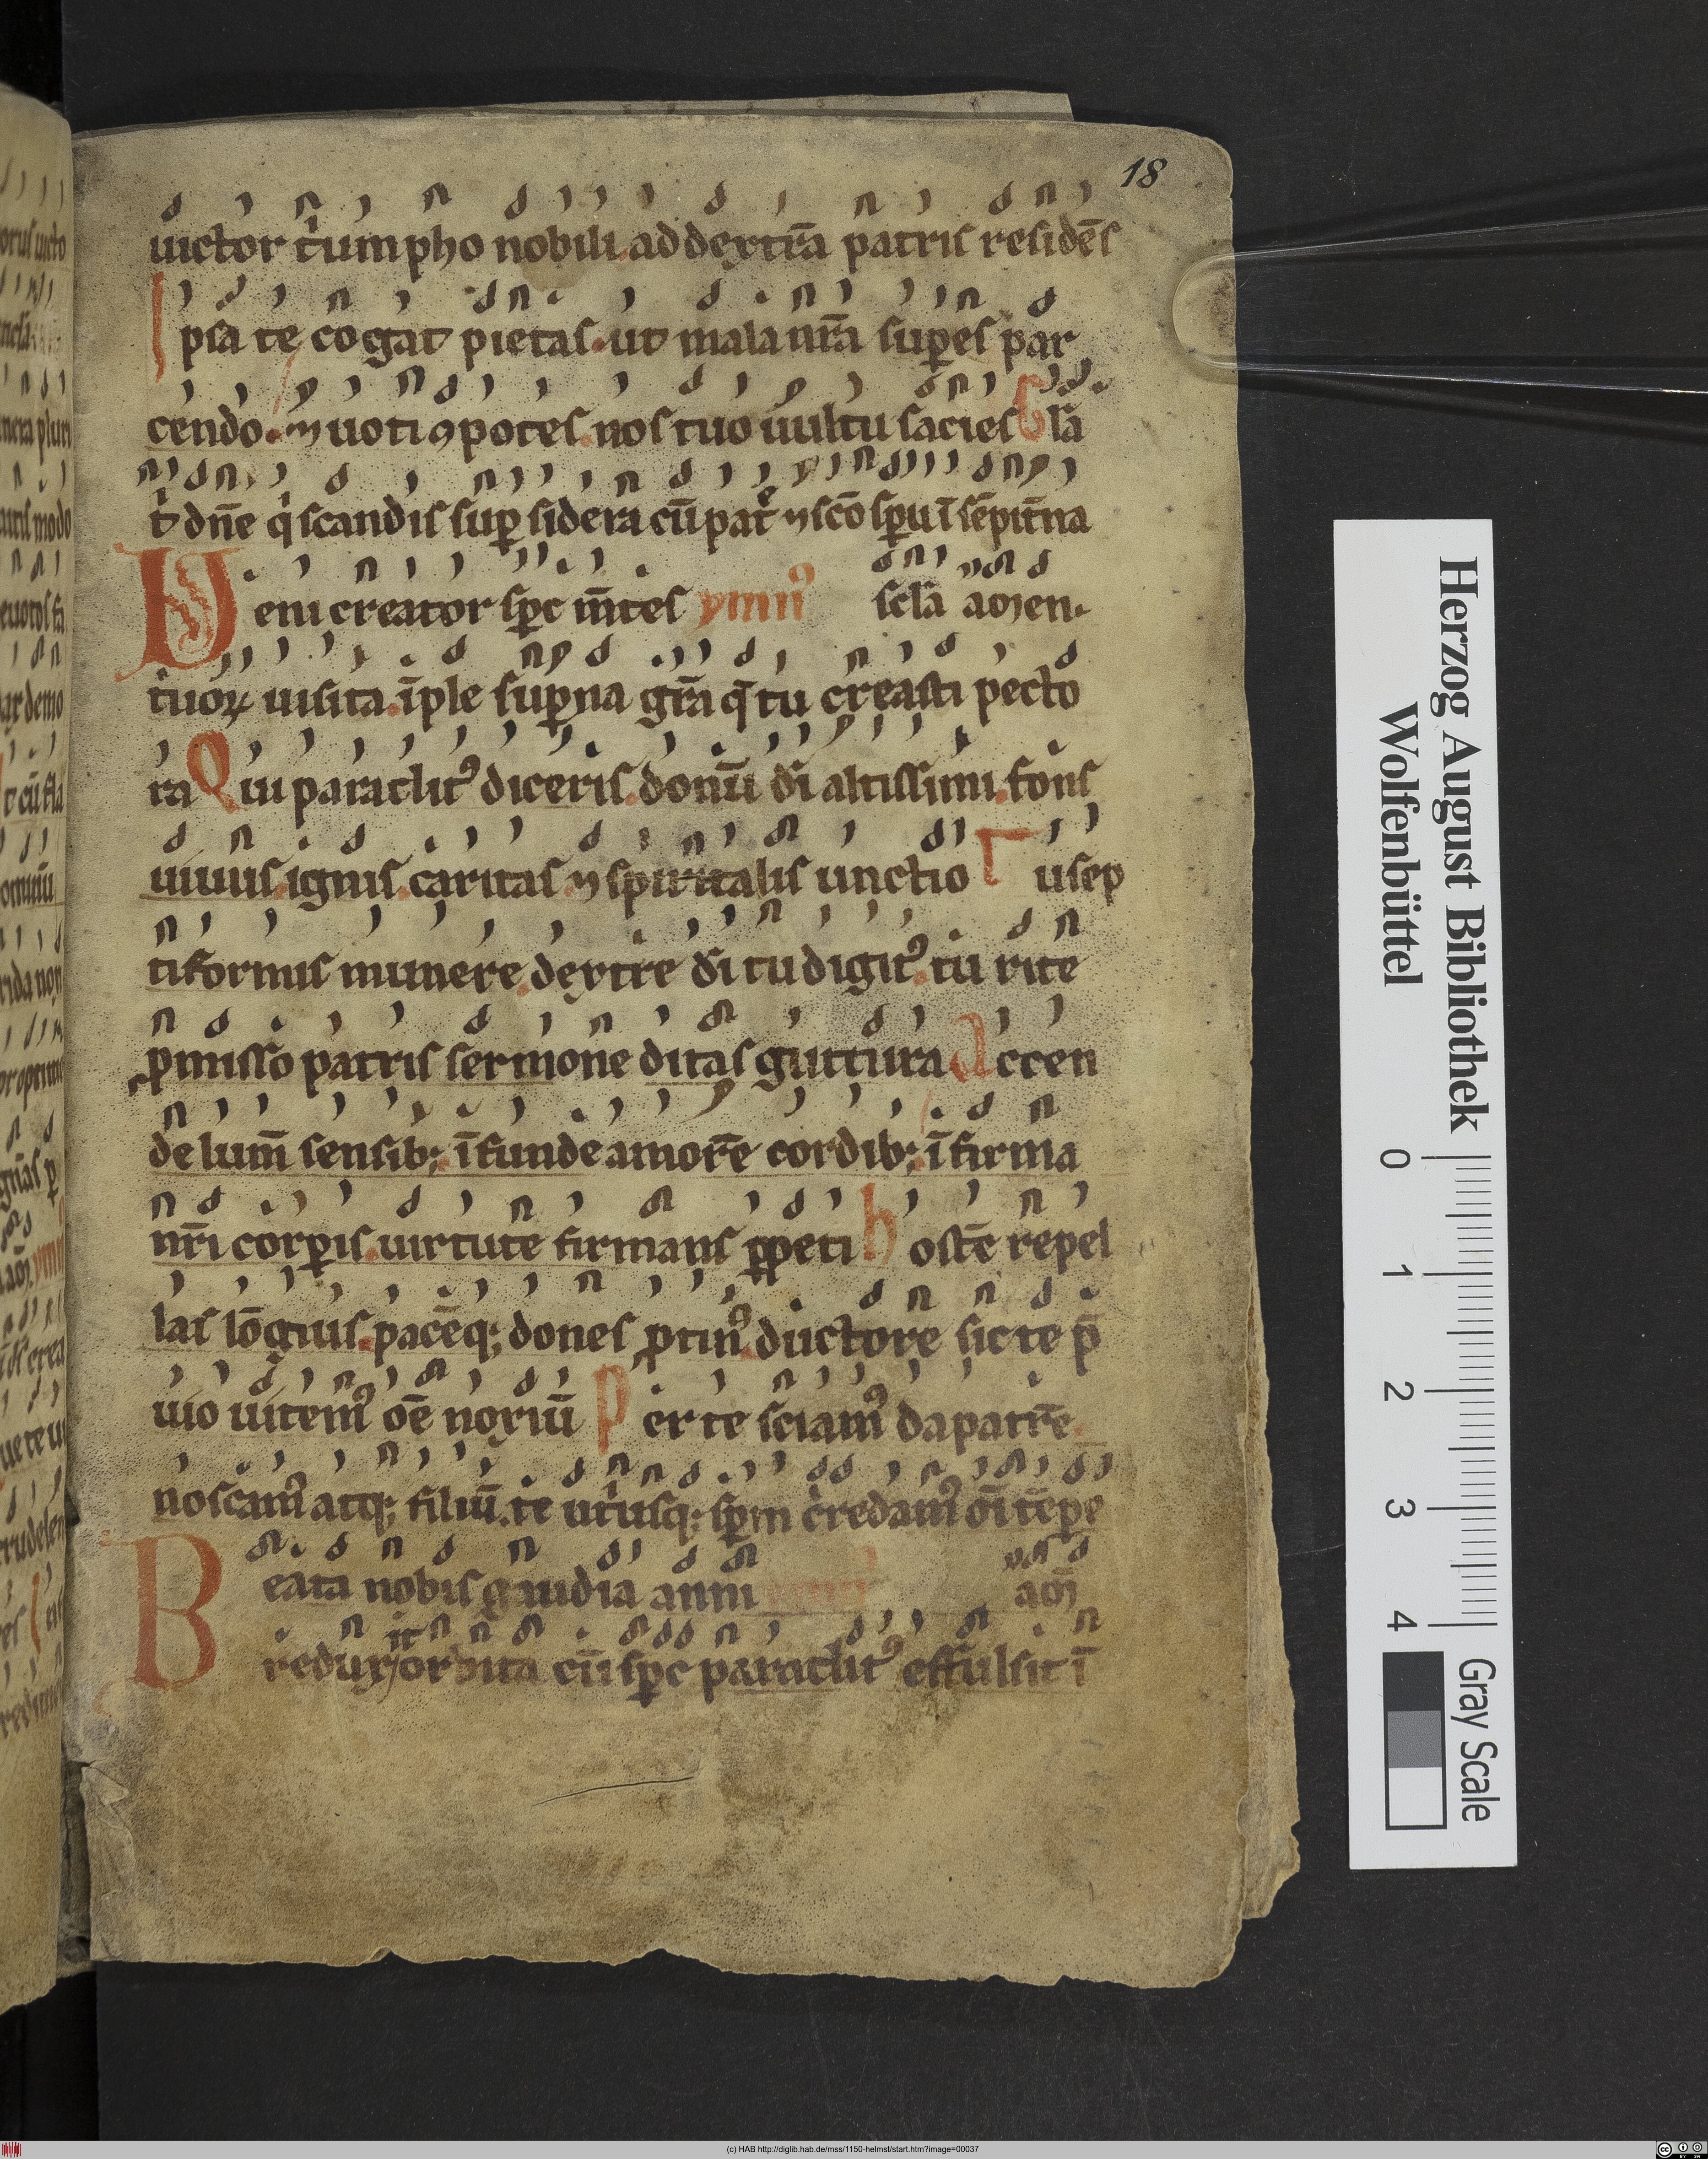 18
uictor t'umpho nobili. ad dextrā patris residēs
Ipsa te cogat pietas. ut mala nr̄a sup̱es par
cendo. ⁊ uoti ꝯpotes. nos tuo uultu sacies Gl̄a
t' dn̄e q' scandis sup̱ sidera cū patre ⁊ sc̄o sp̄u ī sēpit̄na
Veni creator sp̄c m̄tes ymnꝰ scl̄a amen.
tuoꝝ uisita. īple sup̱na gr̄a q̄ tu creasti pecto
ra Qui paraclitꝰ diceris. donū dī altissimi. fons
uiuus. ignis. caritas. ⁊ spiritalis unctio Tu sep
tiformis munere. dextre dī tu digitꝰ. tu rite
ꝓmisso patris sermone ditas guttura Accen
de lum̄ sensib; īfunde amorē cordib; īfirma
nr̄i corꝑis. uirtute firmans ꝑpeti hostē repel
las lōgius. pacēq; dones ꝓtinꝰ. ductore sic te p̄
uio uitemꝰ oē noxiū Per te sciamꝰ da patrē.
noscamꝰ atq; filiū. te ut'usq; sp̄m credamꝰ oī tēpe
Beata nobis gaudia anni am̄
redux it orbita cū sp̄c paraclitꝰ effulsit ī
Herzog August Bibliothek
Wolfenbüttel
0 1 2 3 4
Gray Scale
(c) HAB http://diglib.hab.de/mss/1150-helmst/start.htm?image=00037